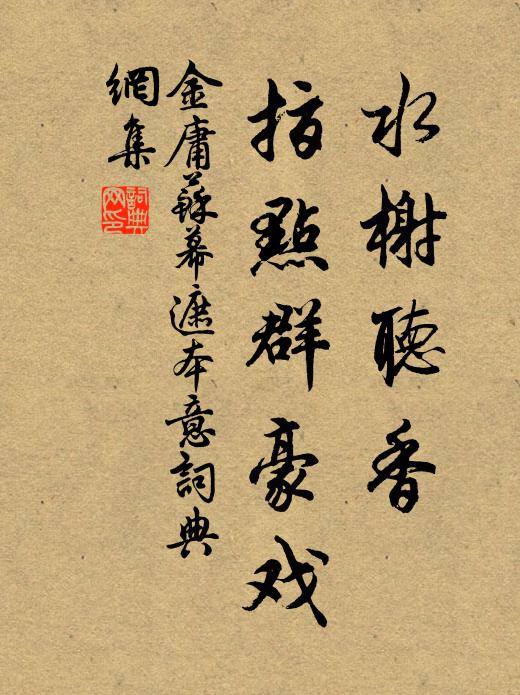 水榭聽香
指點群豪戏
金庸蘇幕遮本意詞典
網集
詞典
网印